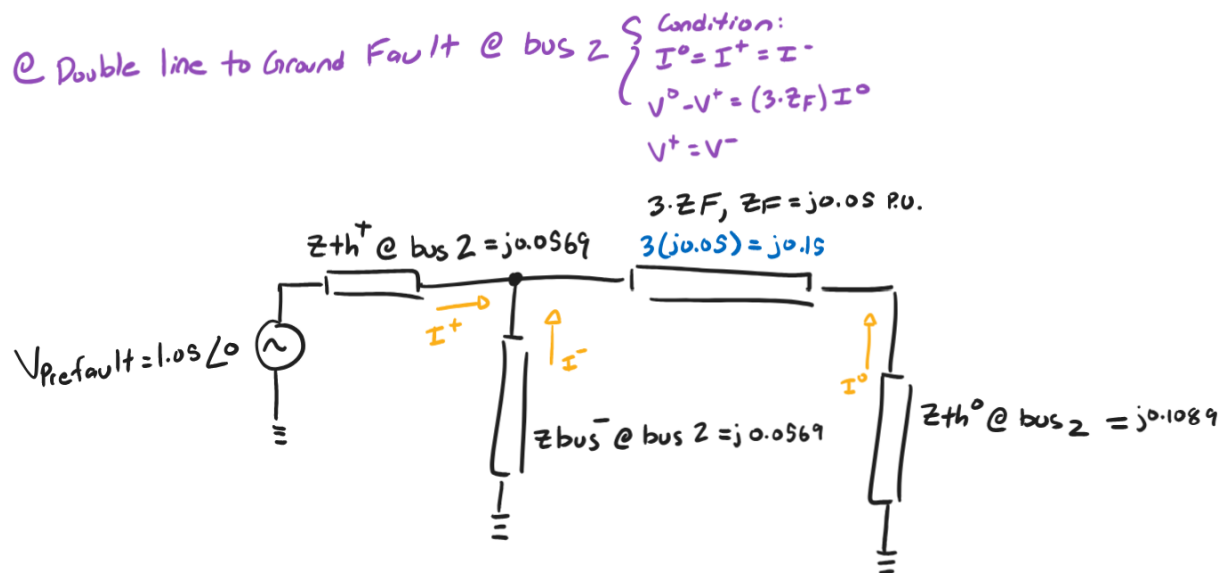 @ Double line to Ground Fault @ bus 2
Condition:
I⁰ = I⁺ = I⁻
V⁰ - V⁺ = (3·ZF) I⁰
V⁺ = V⁻
3·ZF, ZF = j0.05 P.U.
3(j0.05) = j0.15
Zth⁺ @ bus 2 = j0.0569
I⁺
I⁻
I⁰
VPrefault = 1.05 ∠0
Zbus⁻ @ bus 2 = j0.0569
Zth⁰ @ bus 2 = j0.1089